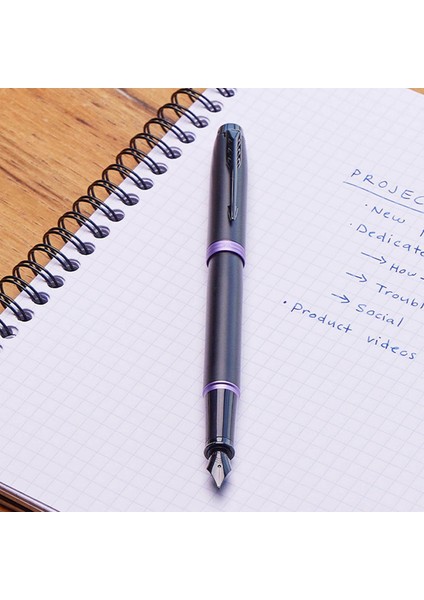 PROJEC
· New
· Dedicate
→ How -
→ Troubl
→ Social
· Product videos